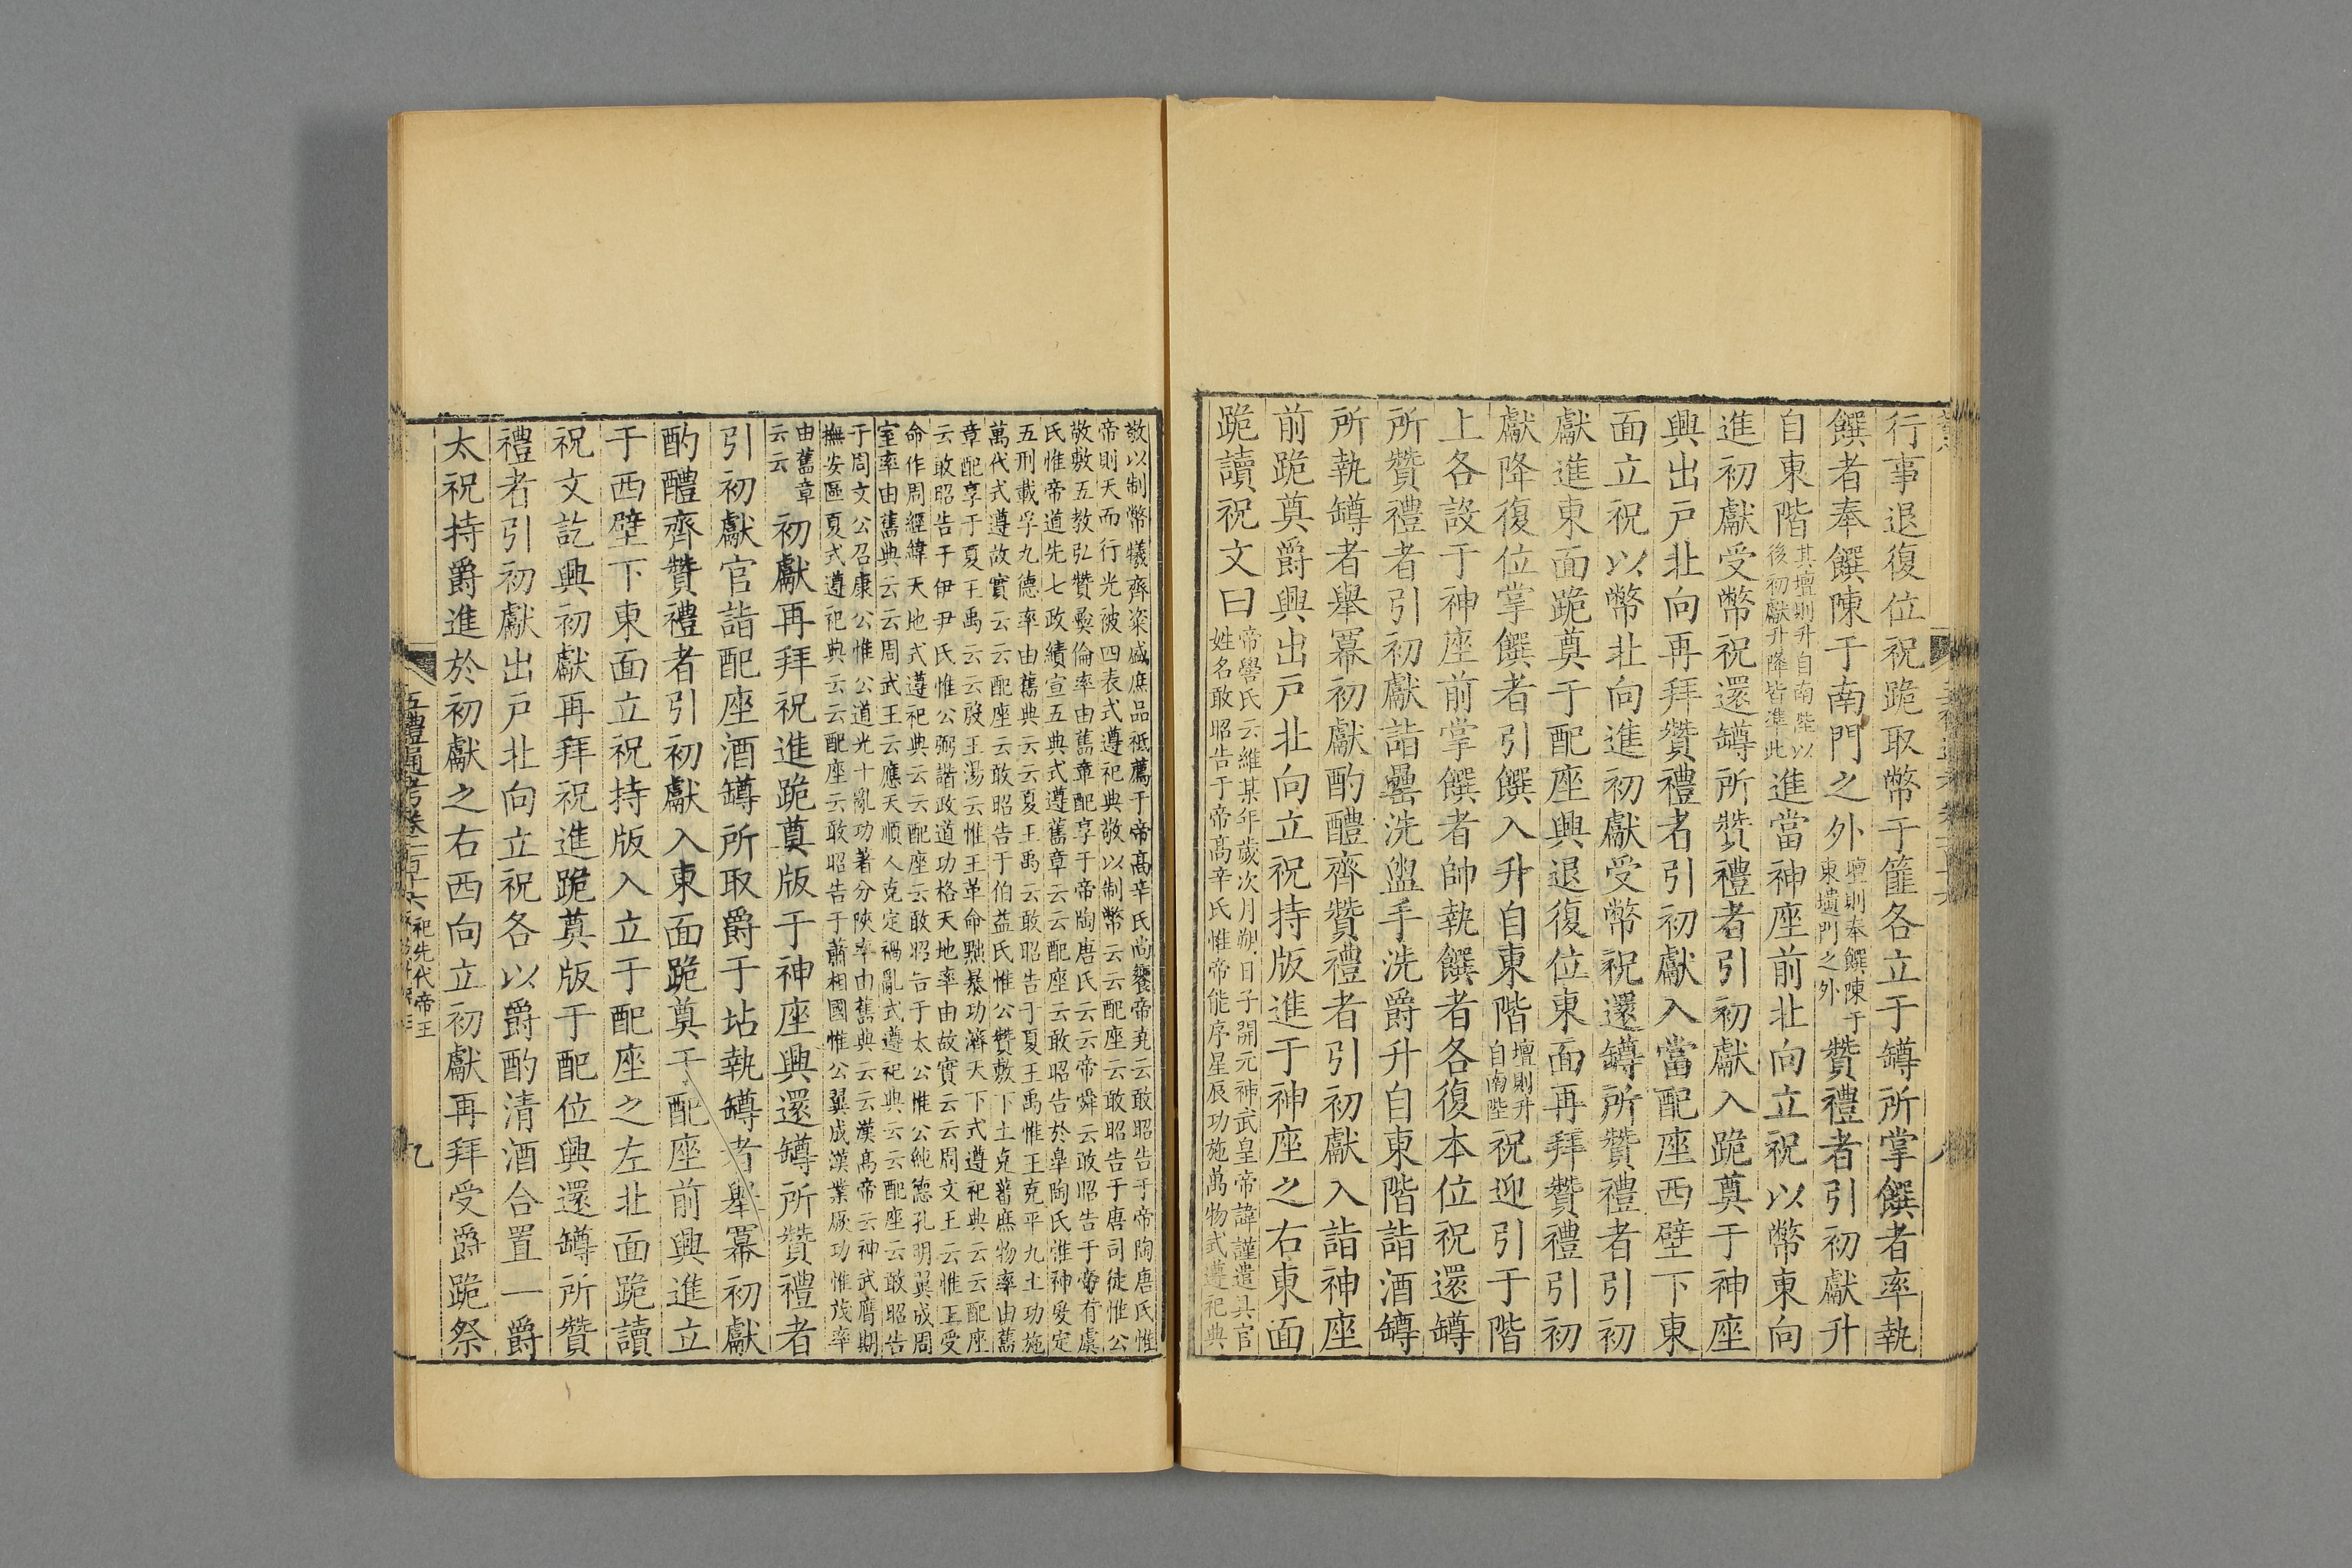 行事退復位祝跪取幣于篚各立于罇所掌饌者率執
饌者奉饌陳于南門之外壇則奉饌陳于東壝門之外贊禮者引初獻升
自東階其壇則升自南陛以後初獻升降皆準此進當神座前北向立祝以幣東向
進初獻受幣祝還罇所贊禮者引初獻入跪奠于神座
興出戶北向再拜贊禮者引初獻入當配座西壁下東
面立祝以幣北向進初獻受幣祝還罇所贊禮者引初
獻進東面跪奠于配座興退復位東面再拜贊禮引初
獻降復位掌饌者引饌入升自東階壇則升自南陛祝迎引于階
上各設于神座前掌饌者帥執饌者各復本位祝還罇
所贊禮者引初獻詣罍洗盥手洗爵升自東階詣酒罇
所執罇者舉冪初獻酌醴齊贊禮者引初獻入詣神座
前跪奠爵興出戶北向立祝持版進于神座之右東面
跪讀祝文曰帝嚳氏云維某年歲次月朔日子開元神武皇帝諱謹遣具官姓名敢昭告于帝高辛氏惟帝能序星辰功施萬物式遵祀典
敬以制幣犧齊粢盛庶品祗薦于帝高辛氏尚饗帝堯云敢昭告于帝陶唐氏惟
帝則天而行光被四表式遵祀典敬以制幣云云配座云敢昭告于唐司徒惟公
敬敷五教弘贊彝倫率由舊章配享于帝陶唐氏云云帝舜云敢昭告于帝有虞
氏惟帝道先七政績宣五典式遵舊章云云配座云敢昭告於皋陶氏惟神爰定
五刑載孚九德率由舊典云云夏王禹云敢昭告于夏王禹惟王克平九土功施
萬代式遵故實云云配座云敢昭告于伯益氏惟公贊敷下土克蕃庶物率由舊
章配享于夏王禹云云殷王湯云惟王革命黜暴功濟天下式遵祀典云云配座
云敢昭告于伊尹氏惟公弼諧政道功格天地率由故實云云周文王云惟王受
命作周經緯天地式遵祀典云云配座云敢昭告于太公惟公純德孔明翼成周
室率由舊典云云周武王云應天順人克定禍亂式遵祀典云云配座云敢昭告
于周文公召康公惟公道光十亂功著分陝率由舊典云云漢高帝云神武膺期
撫安區夏式遵祀典云云配座云敢昭告于蕭相國惟公翼成漢業厥功惟茂率
由舊章云云初獻再拜祝進跪奠版于神座興還罇所贊禮者
引初獻官詣配座酒罇所取爵于坫執罇者舉冪初獻
酌醴齊贊禮者引初獻入東面跪奠于配座前興進立
于西壁下東面立祝持版入立于配座之左北面跪讀
祝文訖興初獻再拜祝進跪奠版于配位興還罇所贊
禮者引初獻出戶北向立祝各以爵酌清酒合置一爵
太祝持爵進於初獻之右西向立初獻再拜受爵跪祭
五禮通考卷一百十六 祀先代帝王 九